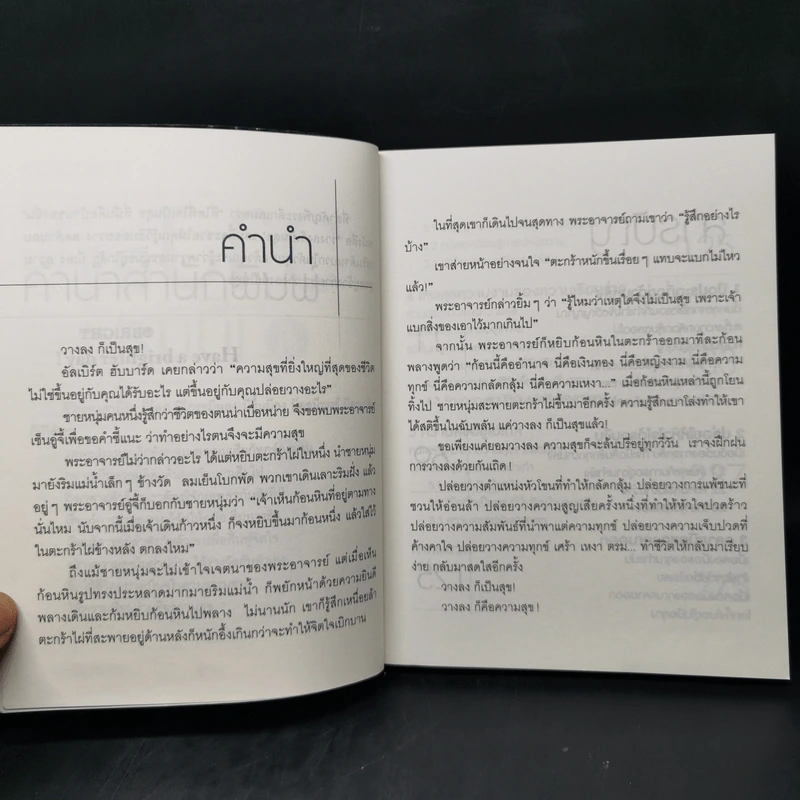 คำนำ
วางลง ก็เป็นสุข!
อัลเบิร์ต ฮับบาร์ด เคยกล่าวว่า “ความสุขที่ยิ่งใหญ่ที่สุดของชีวิต
ไม่ใช่ขึ้นอยู่กับคุณได้รับอะไร แต่ขึ้นอยู่กับคุณปล่อยวางอะไร”
ชายหนุ่มคนหนึ่งรู้สึกว่าชีวิตของตนน่าเบื่อหน่าย จึงขอพบพระอาจารย์
เซ็นอู๋จี้เพื่อขอคำชี้แนะ ว่าทำอย่างไรตนจึงจะมีความสุข
พระอาจารย์ไม่ว่ากล่าวอะไร ได้แต่หยิบตะกร้าไผ่ขึ้นใบหนึ่ง นำชายหนุ่ม
มายังริมแม่น้ำเล็กๆ ข้างวัด ลมเย็นโบกพัด พวกเขาเดินเลาะริมฝั่ง แล้ว
อยู่ๆ พระอาจารย์อู๋จี้ก็บอกกับชายหนุ่มว่า “เจ้าเห็นก้อนหินที่อยู่ตามทาง
นั่นไหม นับจากนี้เมื่อเจ้าเดินก้าวหนึ่ง ก็จงหยิบขึ้นมาก้อนหนึ่ง แล้วใส่ไว้
ในตะกร้าไผ่ข้างหลัง ตกลงไหม”
ถึงแม้ชายหนุ่มจะไม่เข้าใจเจตนาของพระอาจารย์ แต่เมื่อเห็น
ก้อนหินรูปทรงประหลาดมากมายริมแม่น้ำ ก็พยักหน้าด้วยความยินดี
พลางเดินและก้มหยิบก้อนหินไปพลาง ไม่นานนัก เขาก็รู้สึกเหนื่อยล้า
ตะกร้าไผ่ที่สะพายอยู่ด้านหลังก็หนักอึ้งเกินกว่าจะทำให้จิตใจเบิกบาน
ในที่สุดเขาก็เดินไปจนสุดทาง พระอาจารย์ถามเขาว่า “รู้สึกอย่างไร
บ้าง”
เขาส่ายหน้าอย่างจนใจ “ตะกร้าหนักขึ้นเรื่อยๆ แทบจะแบกไม่ไหว
แล้ว!”
พระอาจารย์กล่าวยิ้มๆ ว่า “รู้ไหมว่าเหตุใดจึงไม่เป็นสุข เพราะเจ้า
แบกสิ่งของเอาไว้มากเกินไป”
จากนั้น พระอาจารย์ก็หยิบก้อนหินในตะกร้าออกมาทีละก้อน
พลางพูดว่า “ก้อนนี้คืออำนาจ นี่คือเงินทอง นี่คือหญิงงาม นี่คือความ
ทุกข์ นี่คือความกลัดกลุ้ม นี่คือความเหงา...” เมื่อก้อนหินเหล่านี้ถูกโยน
ทิ้งไป ชายหนุ่มสะพายตะกร้าไผ่ขึ้นมาอีกครั้ง ความรู้สึกเบาโล่งทำให้เขา
ได้สติขึ้นในฉับพลัน แค่วางลง ก็เป็นสุขแล้ว!
ขอเพียงแค่ยอมวางลง ความสุขก็จะล้นปรี่อยู่ทุกวี่วัน เราจงฝึกฝน
การวางลงด้วยกันเถิด!
ปล่อยวางตำแหน่งหัวโขนที่ทำให้กลัดกลุ้ม ปล่อยวางการแพ้ชนะที่
ชวนให้อ่อนล้า ปล่อยวางความสูญเสียครั้งหนึ่งที่ทำให้หัวใจปวดร้าว
ปล่อยวางความสัมพันธ์ที่นำพาแต่ความทุกข์ ปล่อยวางความเจ็บปวดที่
ค้างคาใจ ปล่อยวางความทุกข์ เศร้า เหงา ตรม... ทำชีวิตให้กลับมาเรียบ
ง่าย กลับมาสดใสอีกครั้ง
วางลง ก็เป็นสุข!
วางลง ก็คือความสุข!